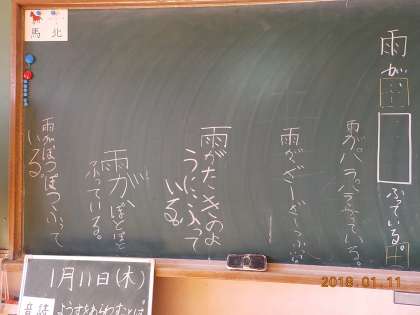 雨が
ふっている。
雨がパラパラふっている。
雨がざーざーふっ
雨がたきのよ
うにふって
いる。
雨が、ぽとぽと
ふっている。
雨がぽつぽつふって
いる。
馬 北
1月11日(木)
音読
ようすをあらわすことば
2018.01.11